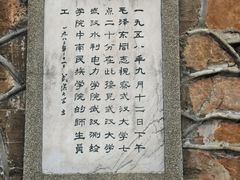 一九五八年九月十二日下午
毛泽东同志视察武汉大学七
点二十分在此接见武汉大学
武汉水利电力学院武汉测绘
学院中南民族学院的师生员
工
武汉大学立